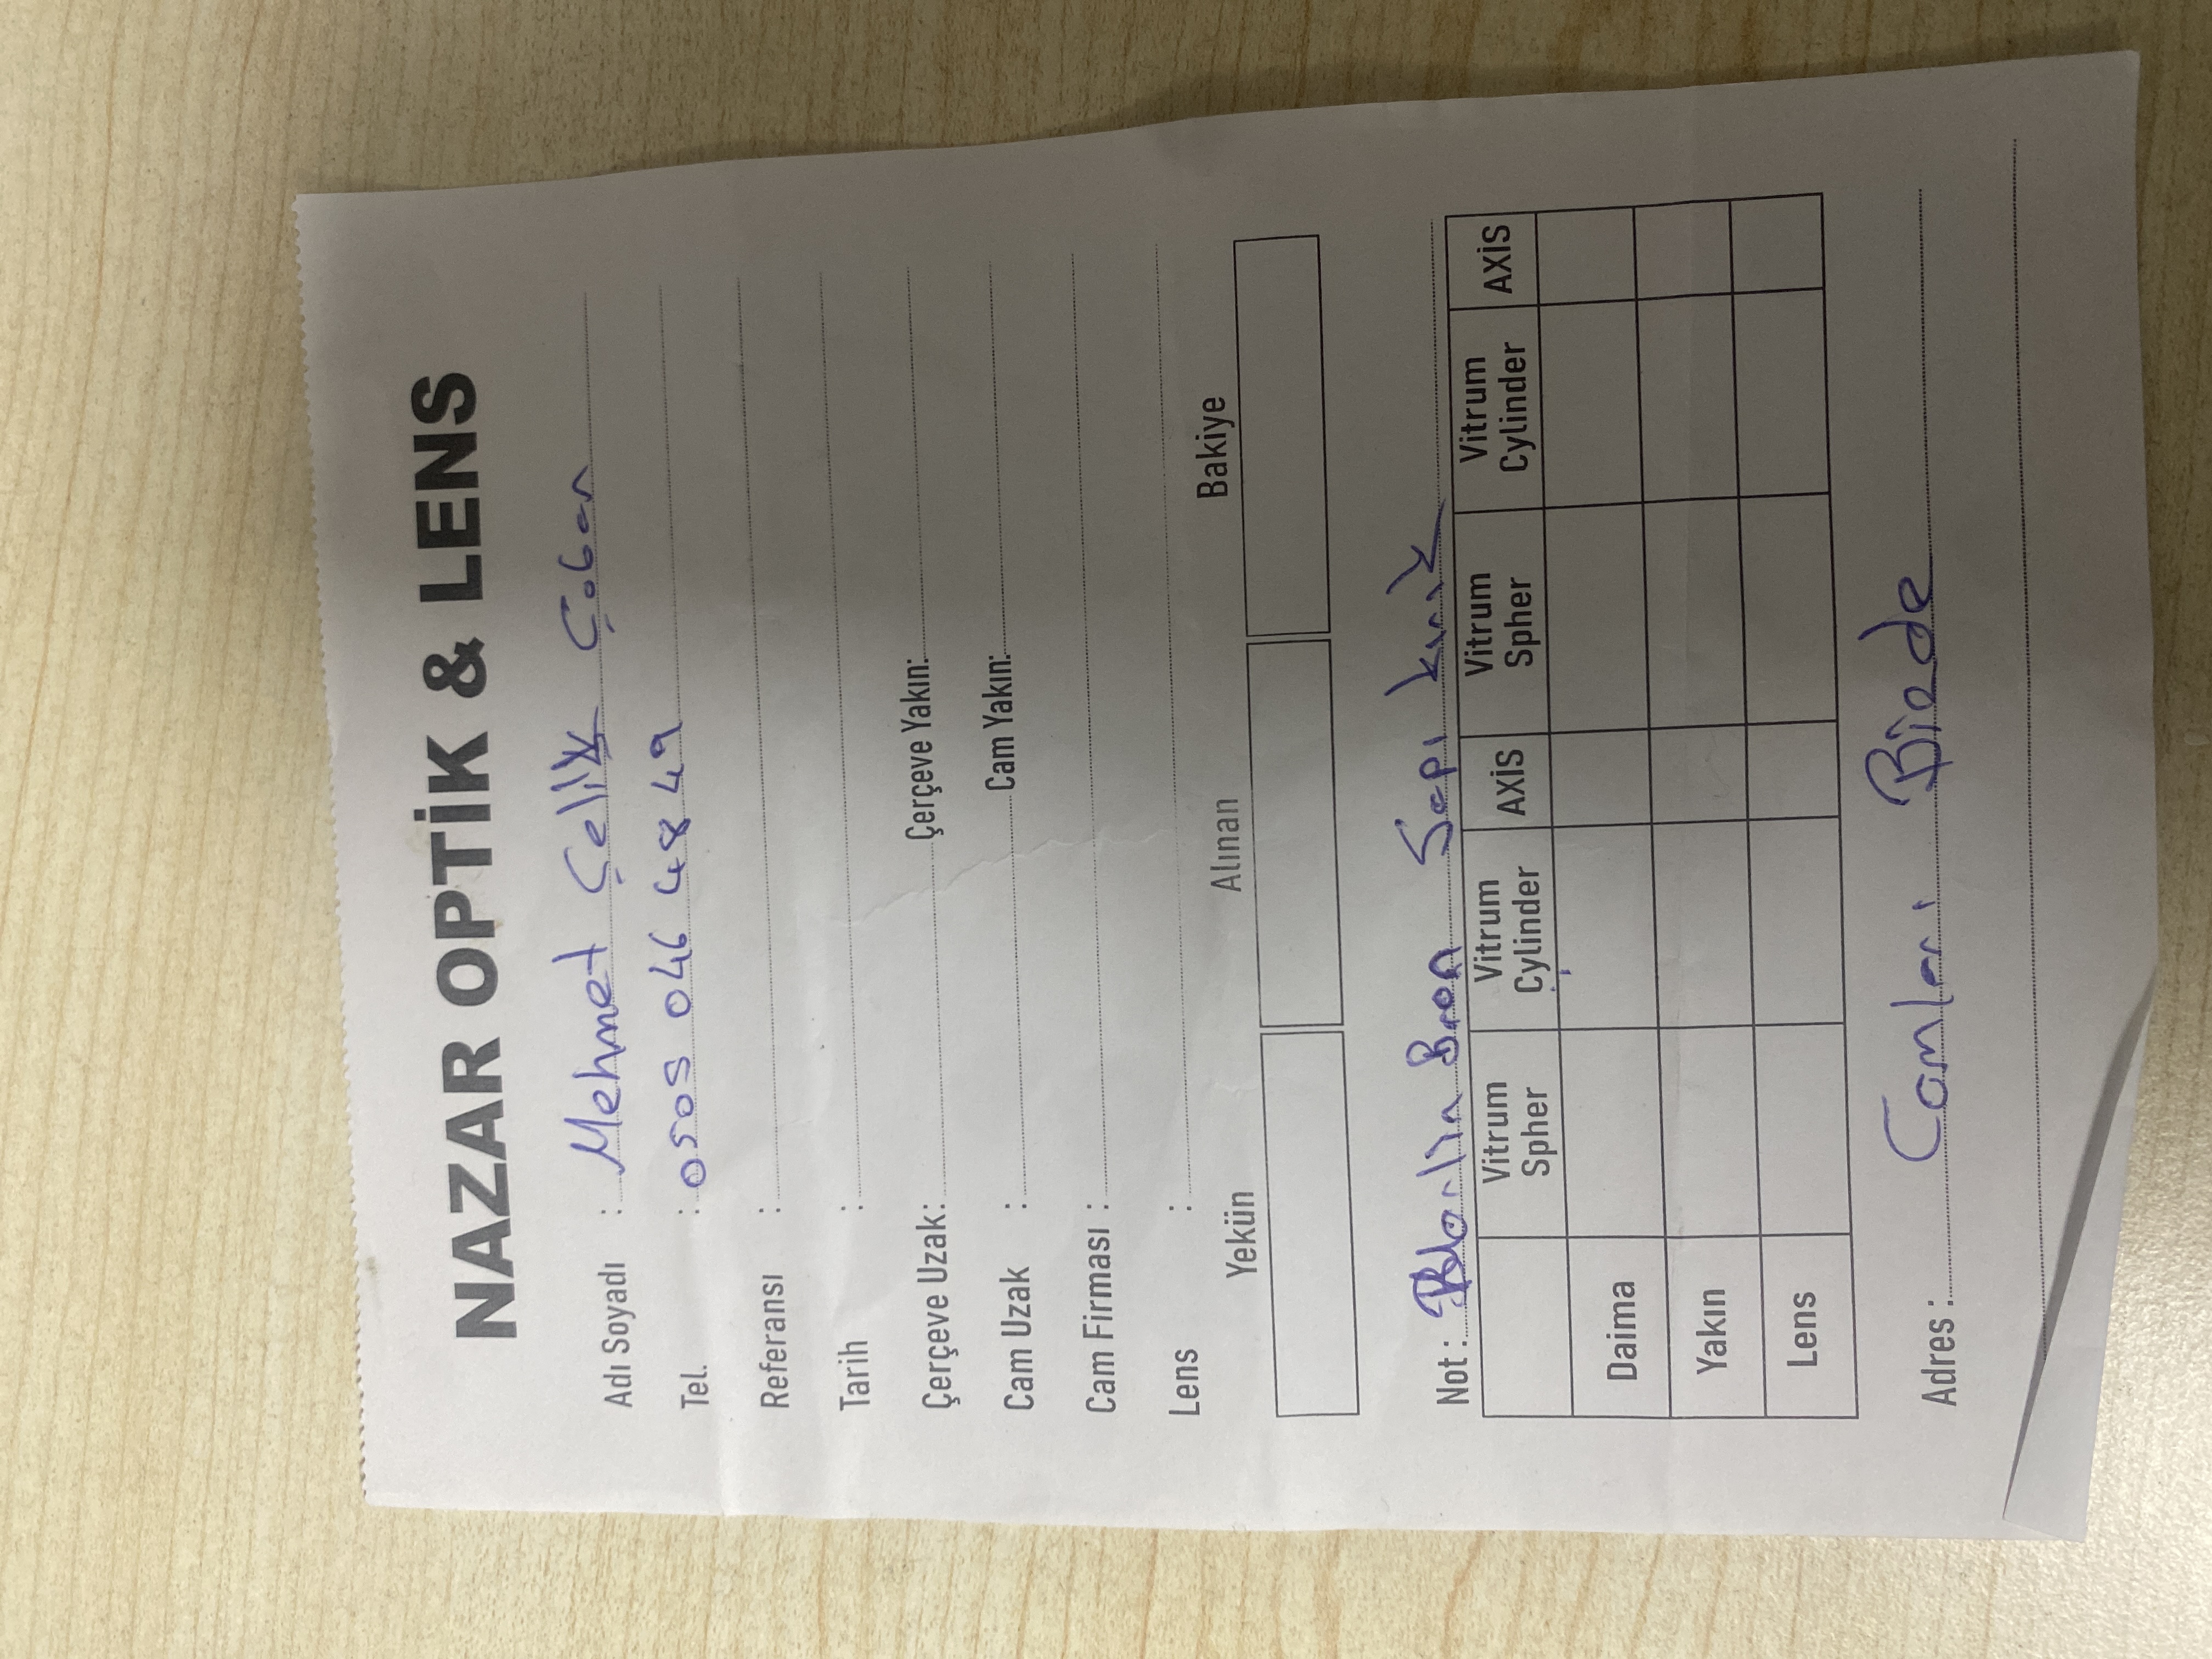 NAZAR OPTİK & LENS
Adı Soyadı : Mehmet Çelik Çoban
Tel. : 0505 046 4849
Referansı :
Tarih :
Çerçeve Uzak: Çerçeve Yakın:
Cam Uzak : Cam Yakın:
Cam Firması :
Lens :
Yekün Alınan Bakiye
Not : Bron Sapı kırık
Vitrum Spher Vitrum Cylinder AXİS Vitrum Spher Vitrum Cylinder AXİS
Daima
Yakın
Lens
Adres : Camları Bizde